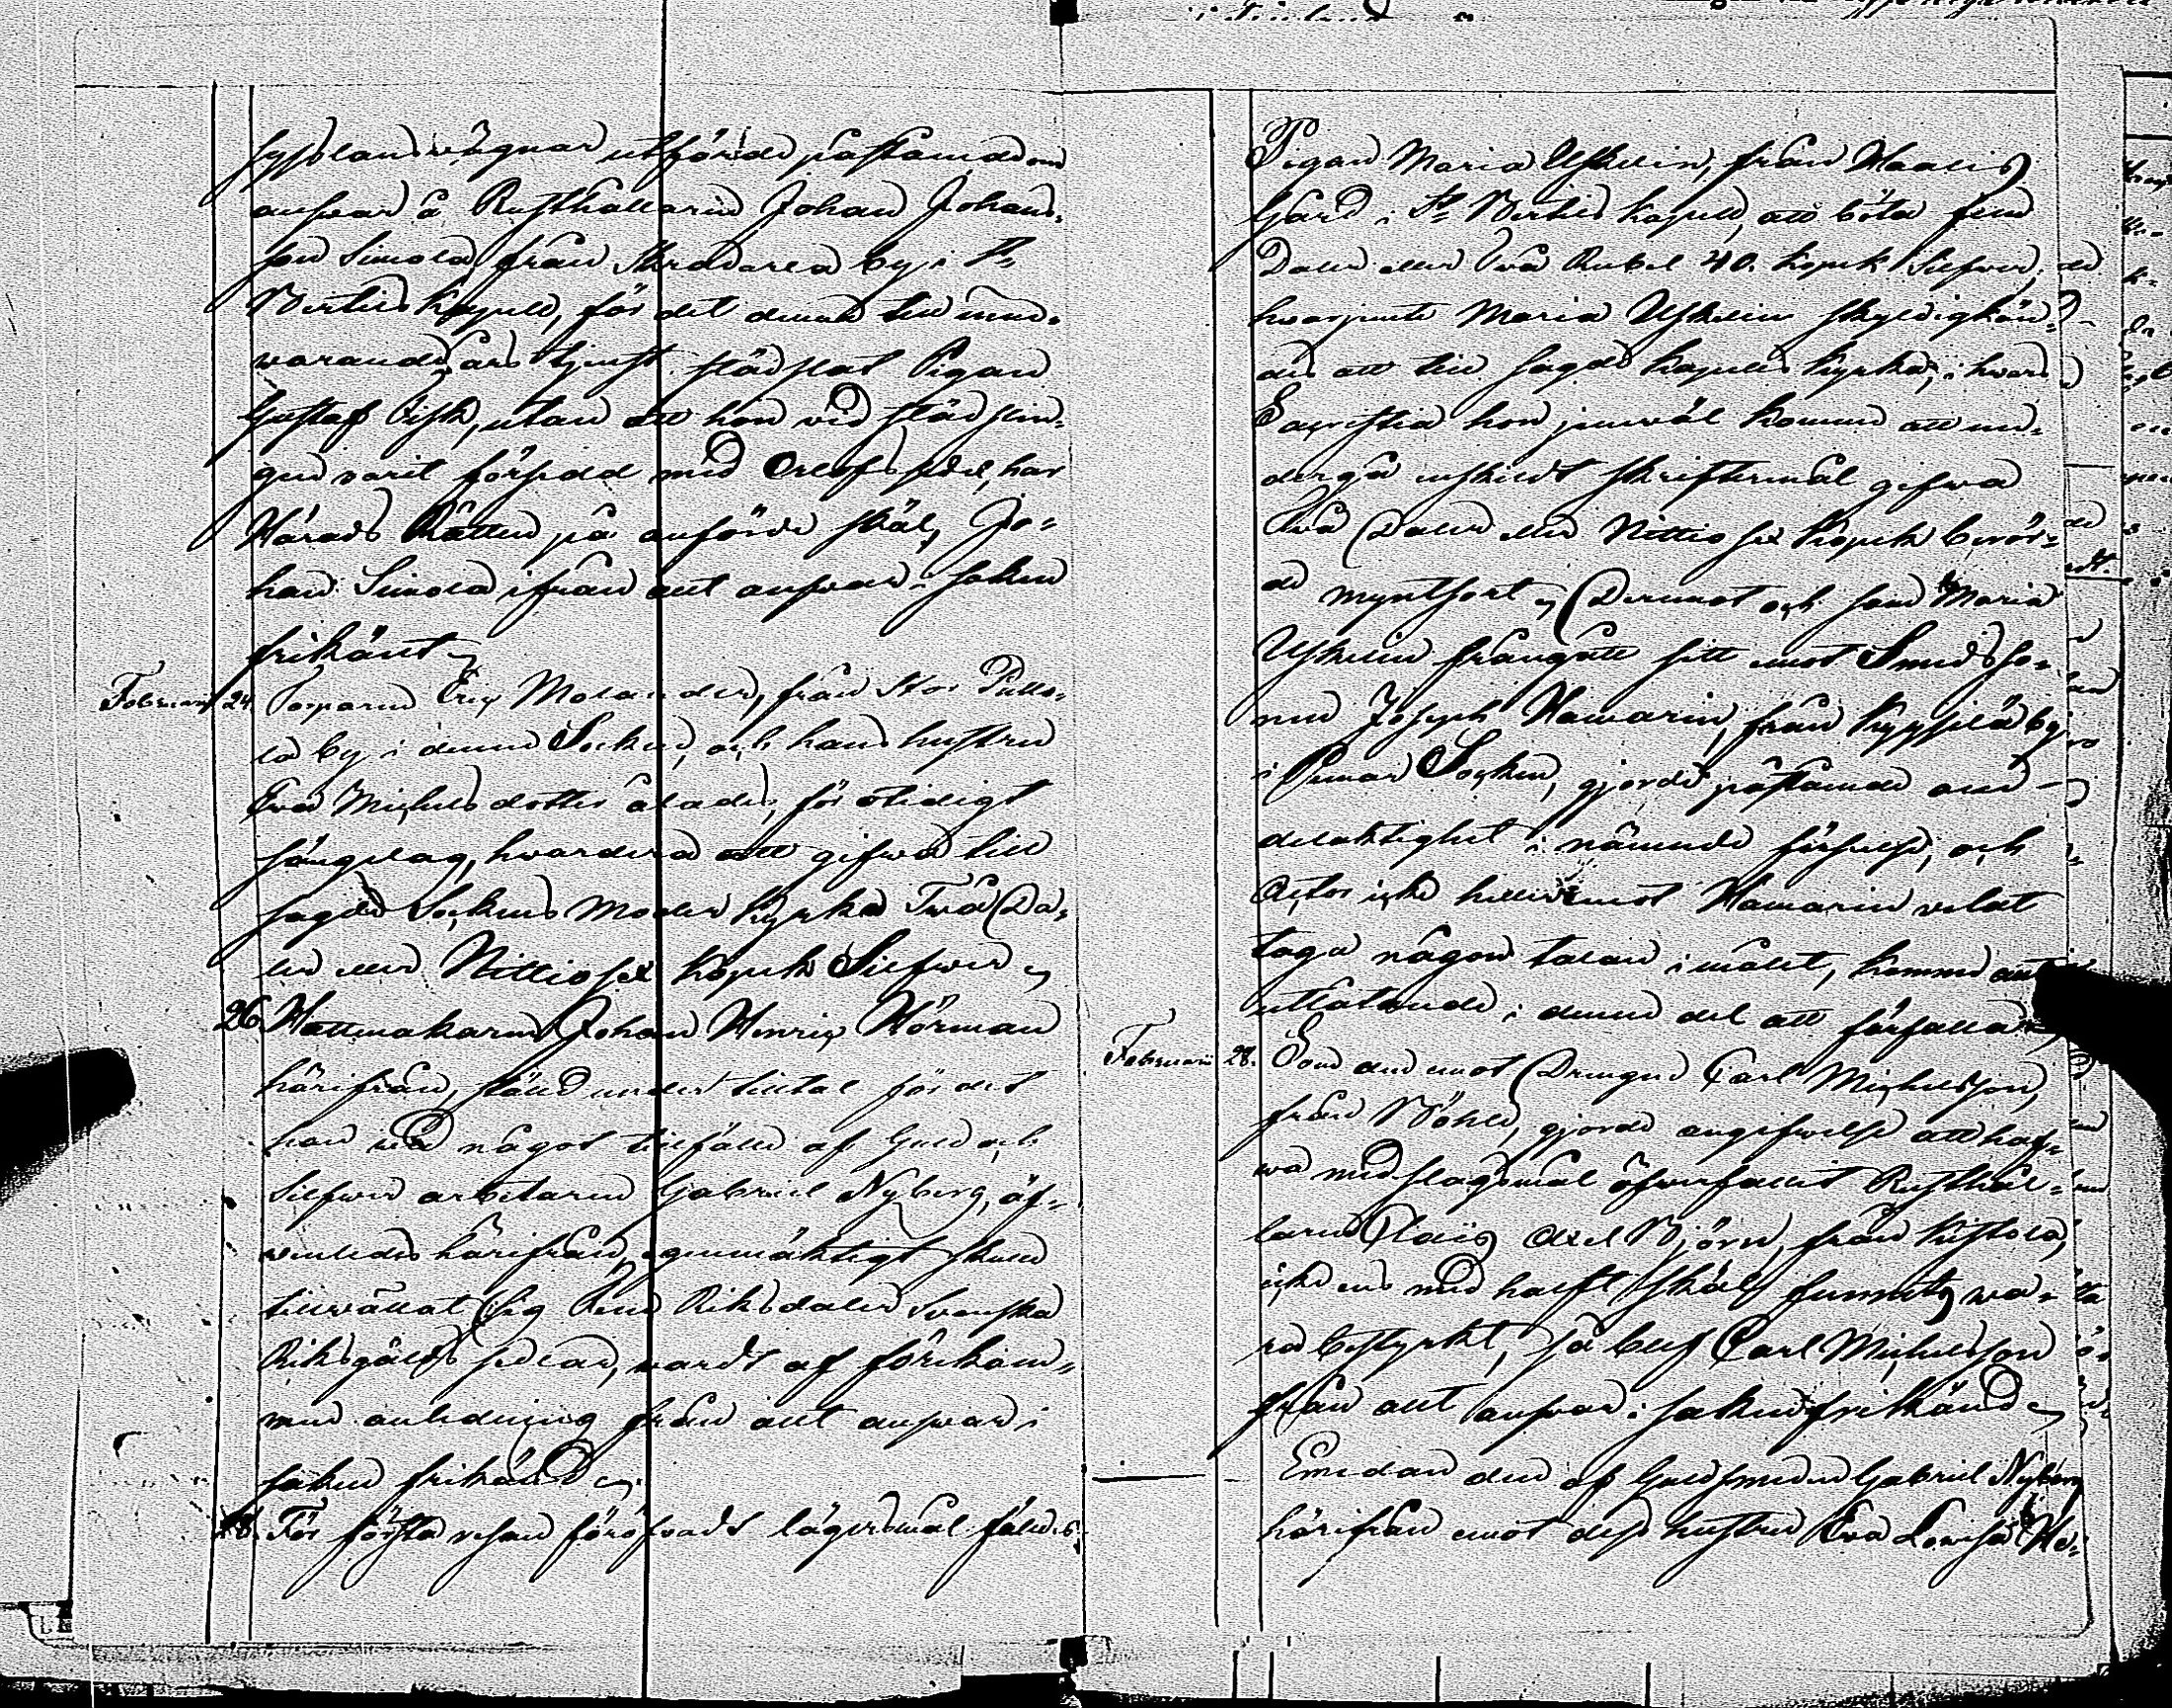 sysslans vägnar utförde påstående om
answar å Rusthållaren Johan Johans-
son Simola, från Skräddarla by i St
Bertils Kapell, för det denne till inne-
warande års tjenst städslat Pigan
Gustaf Fisk, utan att hon vid städslin-
gen varit försedd med Orlofs sedel, har
Härads Rätten på anförde skäl, Jo-
han Simola ifrån allt answar i saken
frikänt
Februarii 24. Torparen Eric Molander, från Stor Pullo-
la by i denne Socken, och hans hustru
Eva Michels dotter ålades, för otidigt
sängelag, hwardera att gifwa till
sagde Sockens Moder Kyrka Twå Da-
ler eller Nittiosex Kopek Silfwer
26. Hattmakaren Johan Henric Hörman
härifrån, ställd under tilltal för det
han wid något tillfälle af Guld och
Silfwer arbetaren Gabriel Nyberg, äf-
wenledes härifrån, egenmäktigt skulle
tillwällat sig Fem Riksdaler Swenska
Riksgälds sedlar, wardt af förekom-
men anledning från allt answar i
saken frikänd
28. För första resan föröfwadt lägersmål fälldes
Pigan Maria Uskelin, från Haalis
Gård i St Bertils Kapell, att böta fem
Daler eller Två Rubel 40. Kopek Silfwer,
hwarjemte Maria Uskelin skyldigkän-
des att till sagde Kapells Kyrka, i hwars
Sacristia hon jemwäl kommer att un-
dergå enskildt skriftermål gifwa
Två Daler eller Nittiosex Kopek berör-
de myntsort Deremot och som Maria
Uskelin frångått sitt emot Smedsso-
nen Joseph Hamarin, från Kyysilä by
i Pemar Socken, gjorde påstående om
delaktighet i nämnde förseelse, och
Actor icke heller emot Hamarin velat
taga någon talan i målet, kommer allt
utlåtande i denne del att förfalla
Februarii 28. Som den emot Drengen Carl Michelsson,
från Böhle, gjorde angifwelse att haf-
wa med slagsmål öfwerfallit Rusthål-
laren Claës Axel Björn, från Kistola,
icke ens med halft skäl funnits wa-
ra bestyrkt, så blef Carl Michelsson
från allt answar i saken frikänd
Emedan den af Guldsmeden Gabriel Nyberg
härifrån emot dess hustru Eva Lovisa He-